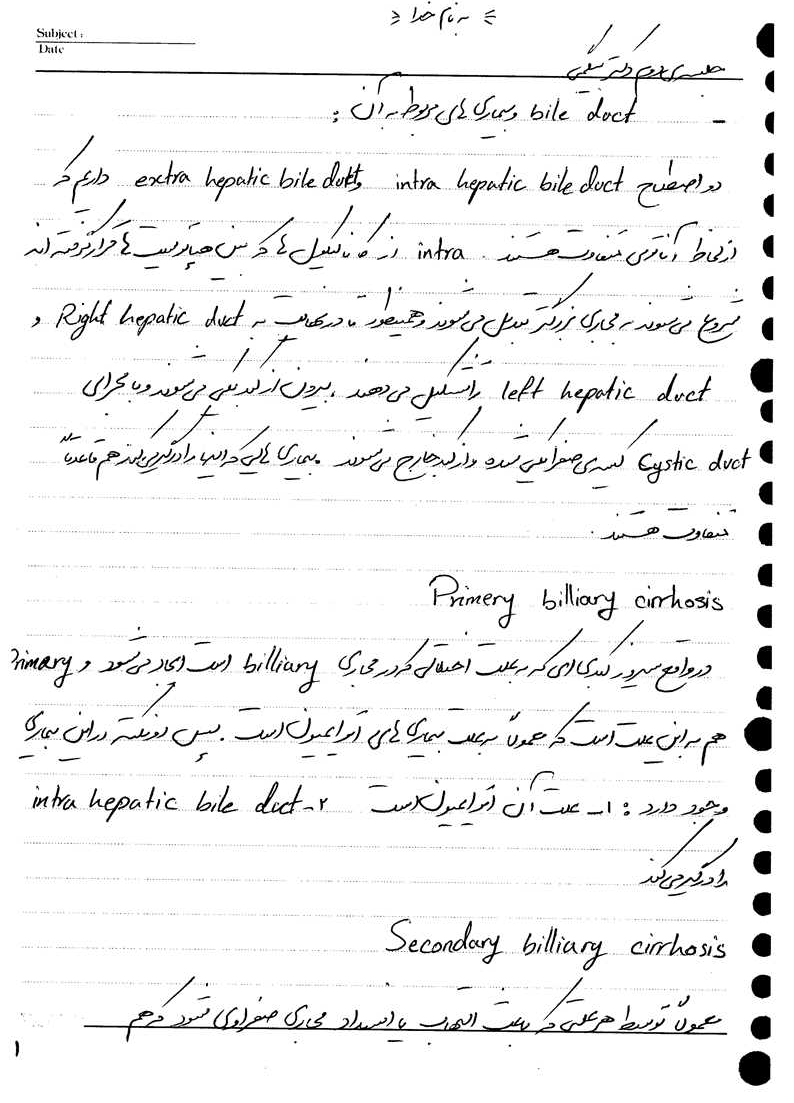 به نام خدا
Subject:
Date
جلسه ی دوم دکتر
- bile duct و بیماری های مربوط به آن :
دو اصطلاح intra hepatic bile duct و extra hepatic bile duct داریم که
از لحاظ آناتومی متفاوت هستند. intra از کانالیکول ها که بین هپاتوسیت ها قرار گرفته اند
شروع می شوند به مجاری بزرگتر تبدیل می شوند و همینطور تا در نهایت به Right hepatic duct و
left hepatic duct را تشکیل می دهند، بیرون از کبد یکی می شوند و با مجرای
Cystic duct کیسه ی صفرا یکی شده و از کبد خارج می شوند. بیماری هایی که اینها را درگیر می کند هم قاعدتاً
متفاوت هستند.
Primery billiary cirrhosis
در واقع سیروز کبدی ای که به علت اختلالی که در مجاری billiary است ایجاد می شود و Primary
هم به این علت است که معمولاً به علت بیماری های اتوایمیون است. پس دو نکته در این بیماری
وجود دارد : ۱- علت آن اتوایمیون است ۲- intra hepatic bile duct
را درگیر می کند
Secondary billiary cirrhosis
معمولاً توسط هر علتی که باعث التهاب یا انسداد مجاری صفراوی شود که هم
۱